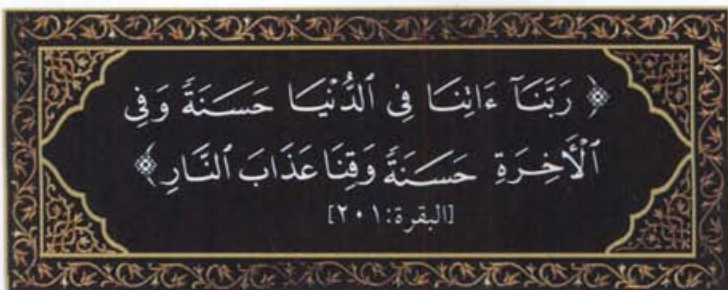 ﴿ رَبَّنَآ ءَاتِنَا فِى ٱلدُّنْيَا حَسَنَةً وَفِى
ٱلْأَخِرَةِ حَسَنَةً وَقِنَا عَذَابَ ٱلنَّارِ ﴾
[البقرة: ٢٠١]